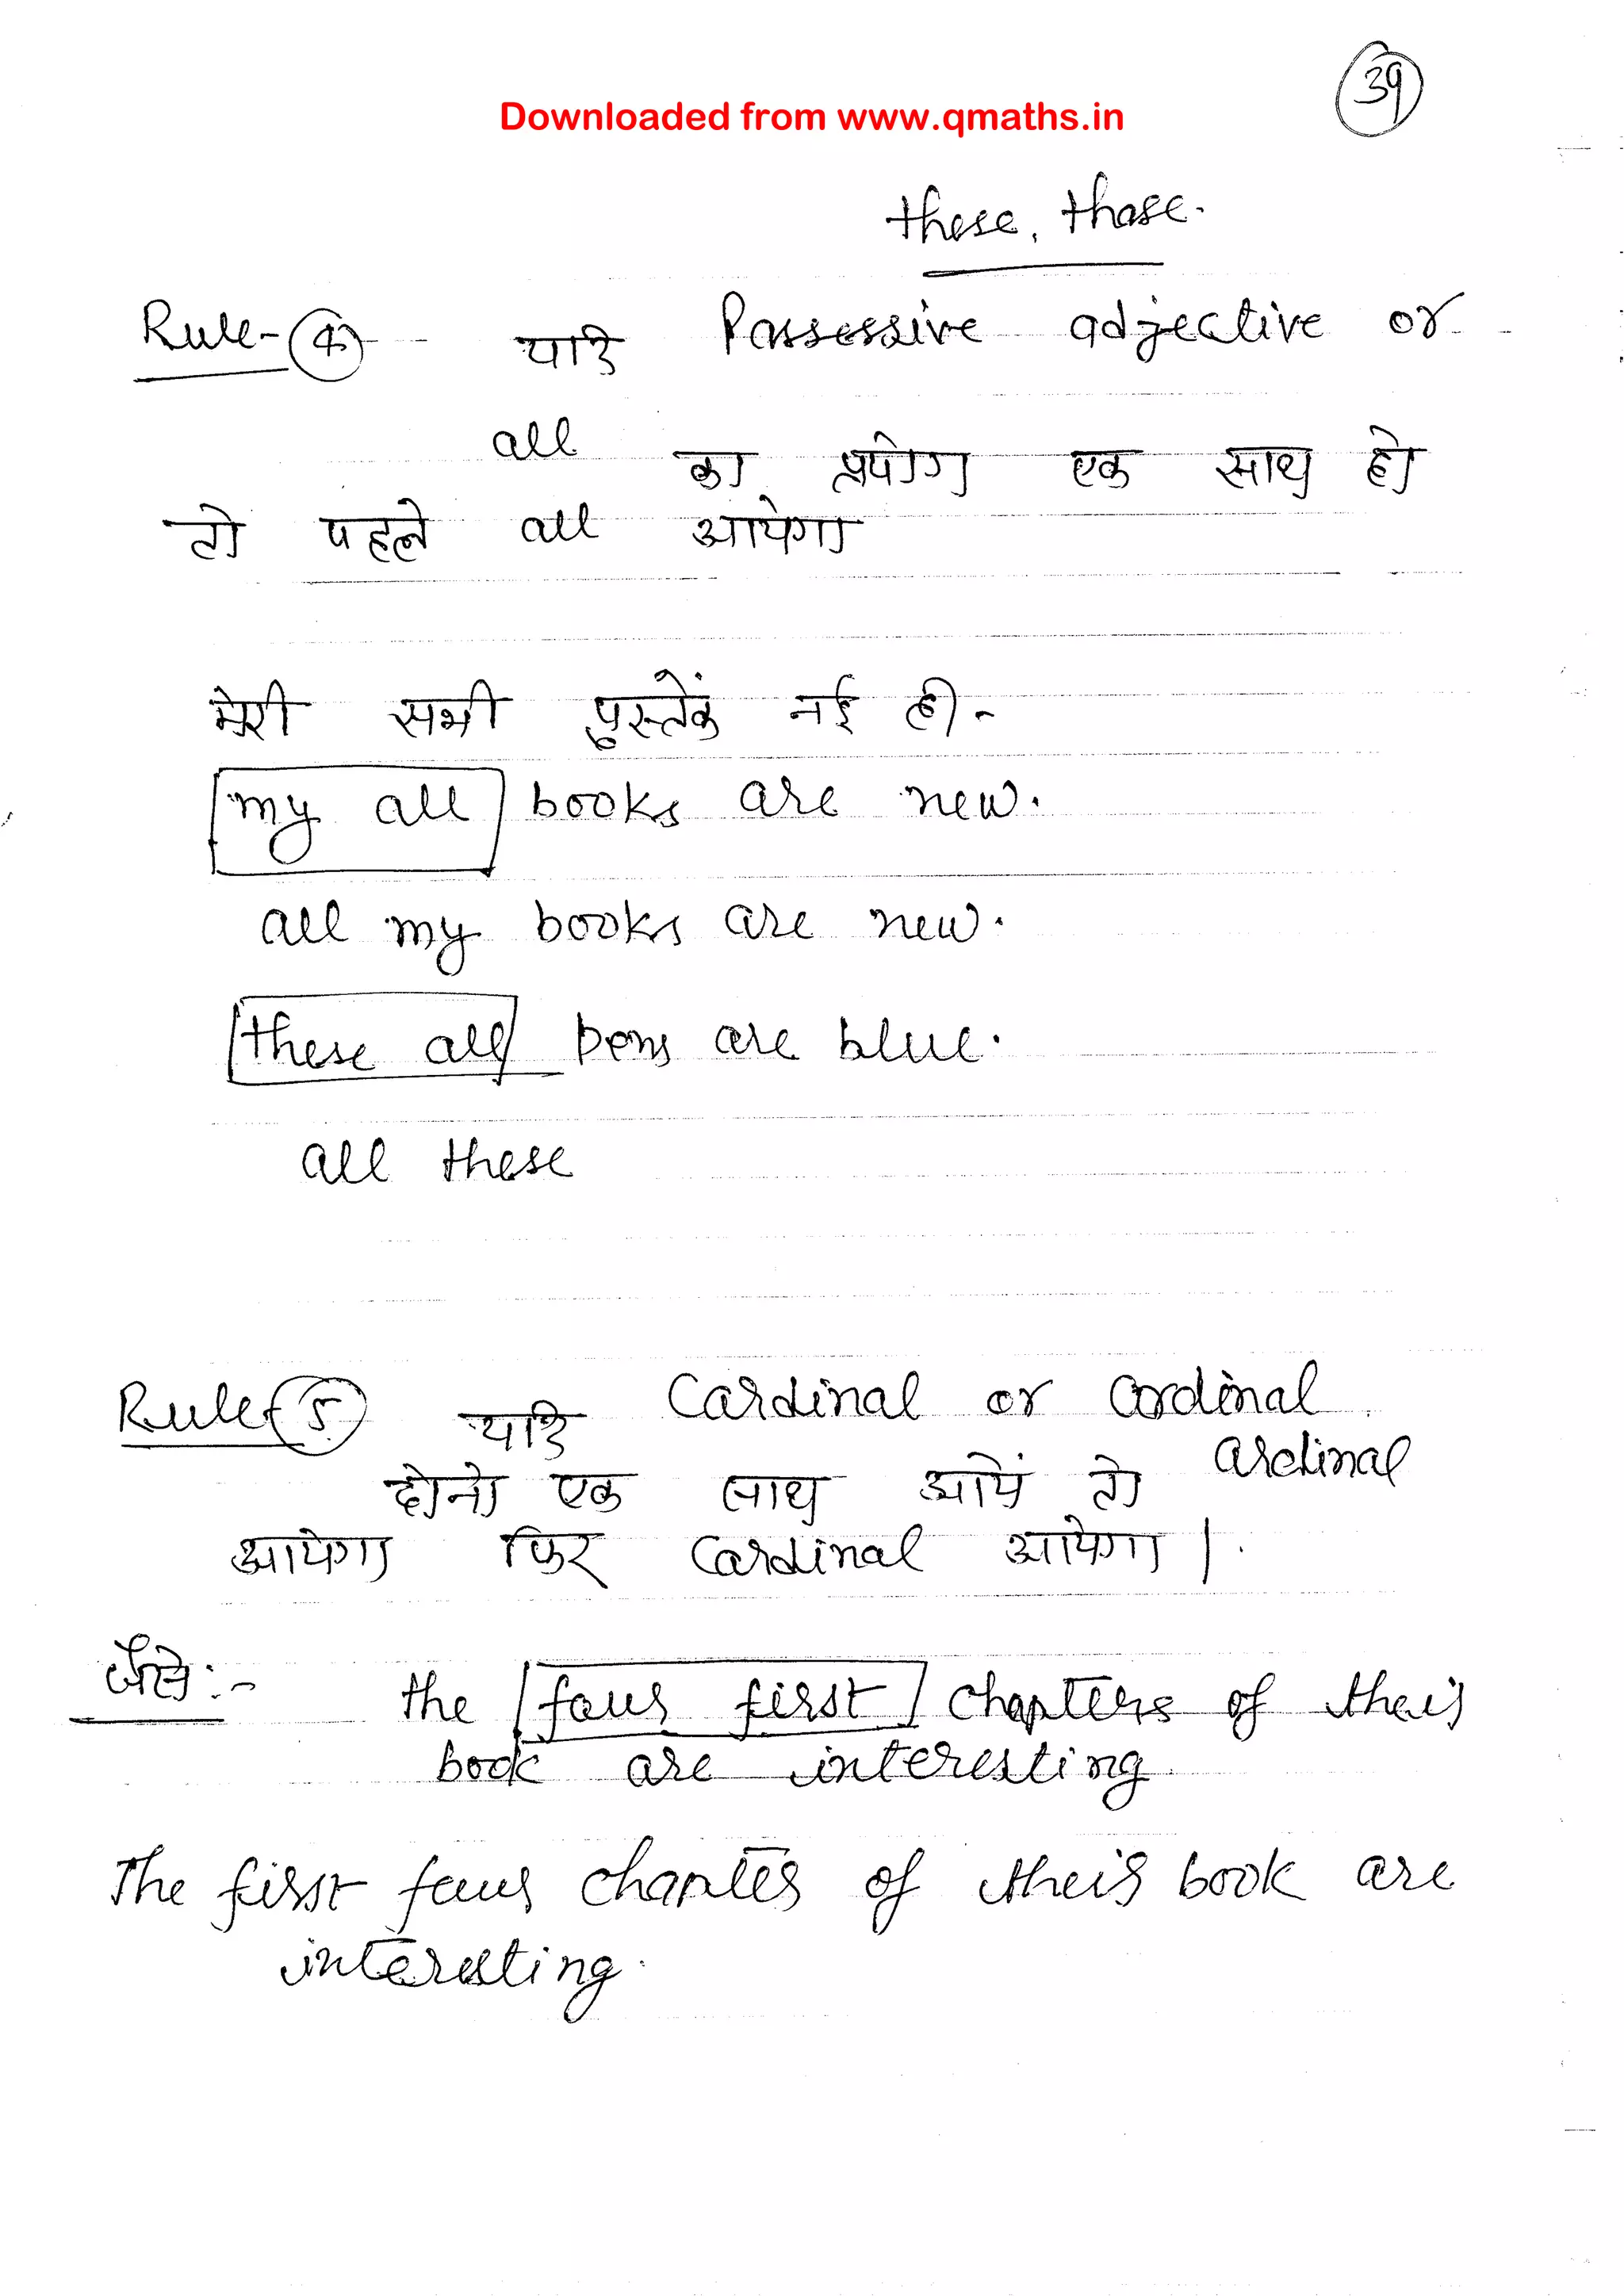 39
Downloaded from www.qmaths.in
these, those.
Rule-(4) यदि Possessive adjective or
all का प्रयोग एक साथ हो
तो पहले all आयेगा
मेरी सभी पुस्तकें नई हैं-
my all books are new.
all my books are new.
these all pens are blue.
all these
Rule (5) यदि Cardinal or Ordinal
दोनो एक साथ आयें तो ordinal
आयेगा फिर Cardinal आयेगा।
जैसे:- the four first chapters of their
book are interesting.
The first four chapters of their book are
interesting.